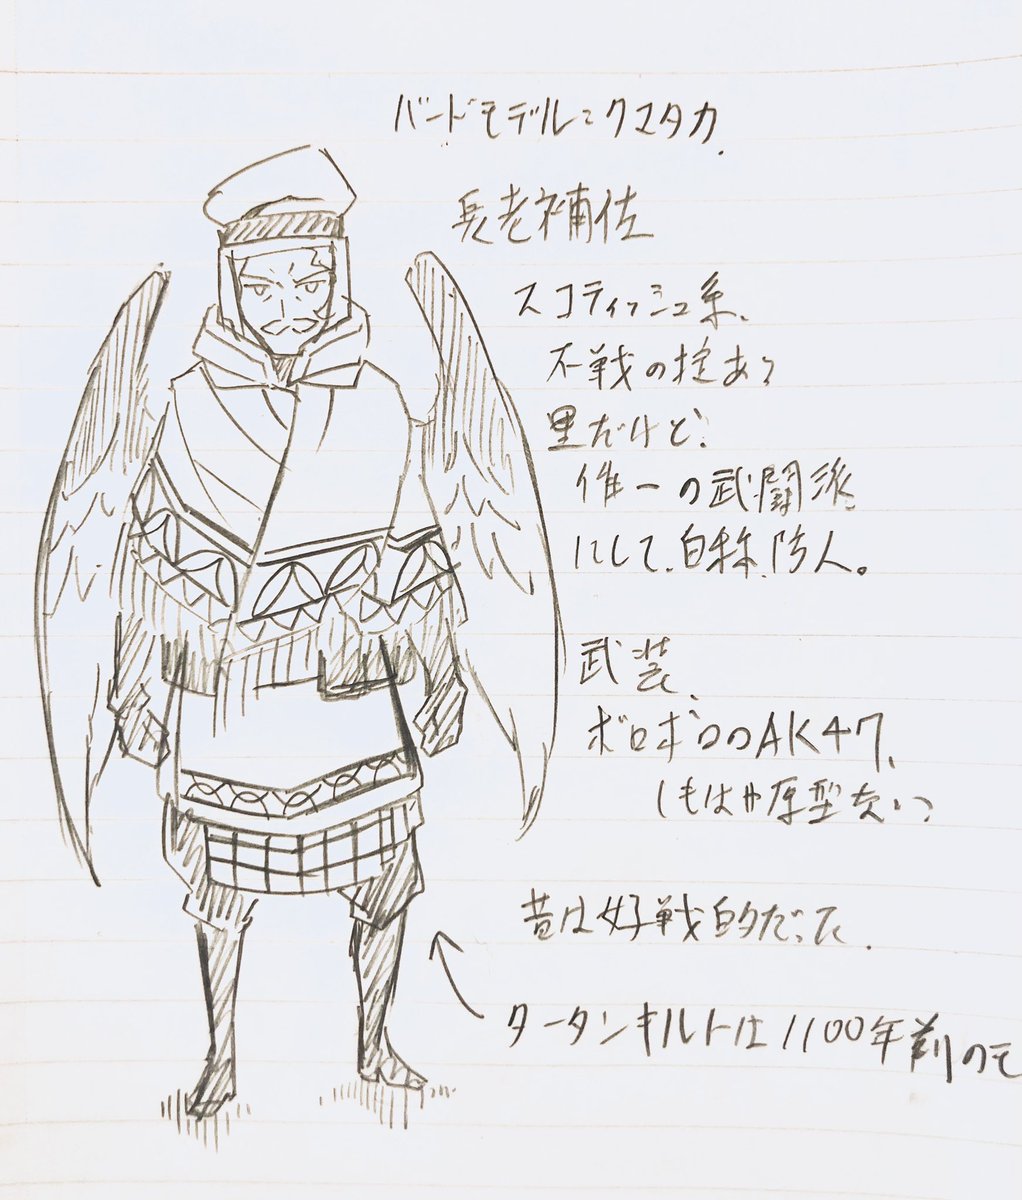 バードモデル:クマタカ、
長老補佐
スコティッシュ系、
不戦の掟ある
里だけど、
唯一の武闘派
にして、自称、防人。
武装、
ボロボロのAK47、
(もはや原型ない)
昔は好戦的だった、
タータンキルトは1100年前のモ